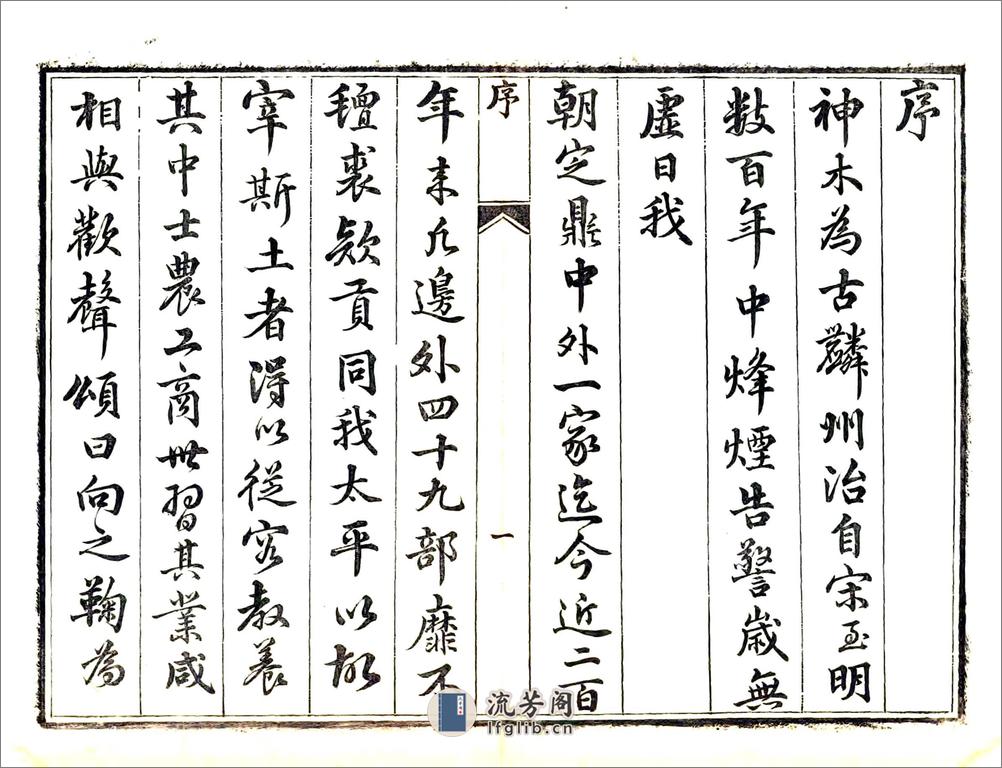 序
神木為古麟州治自宋至明
數百年中烽煙告警歲無
虛日我
朝定鼎中外一家迄今近二百
序
一
年來凡邊外四十九部靡不
氊裘欵貢同我太平以故
宰斯土者得以從容教養
其中士農工商世習其業咸
相與歡聲頌曰向之鞠為
流芳阁
lfglib.cn